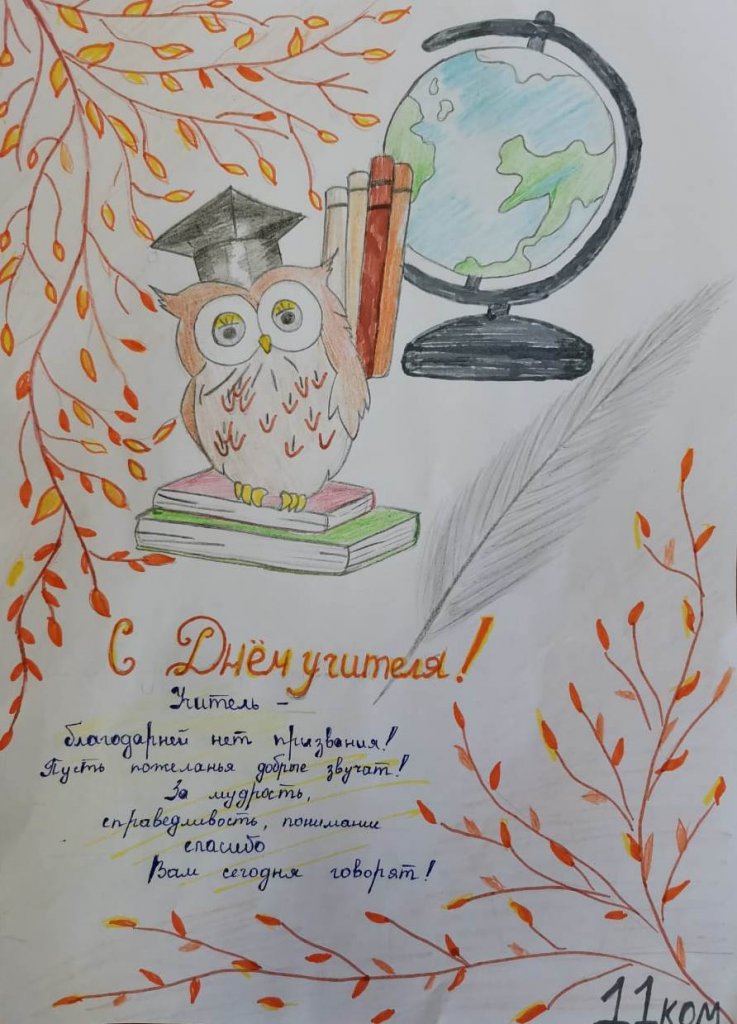 С Днём учителя!
Учитель -
благодарней нет призвания!
Пусть пожеланья добрые звучат!
За мудрость,
справедливость, понимание
спасибо
Вам сегодня говорят!
11ком